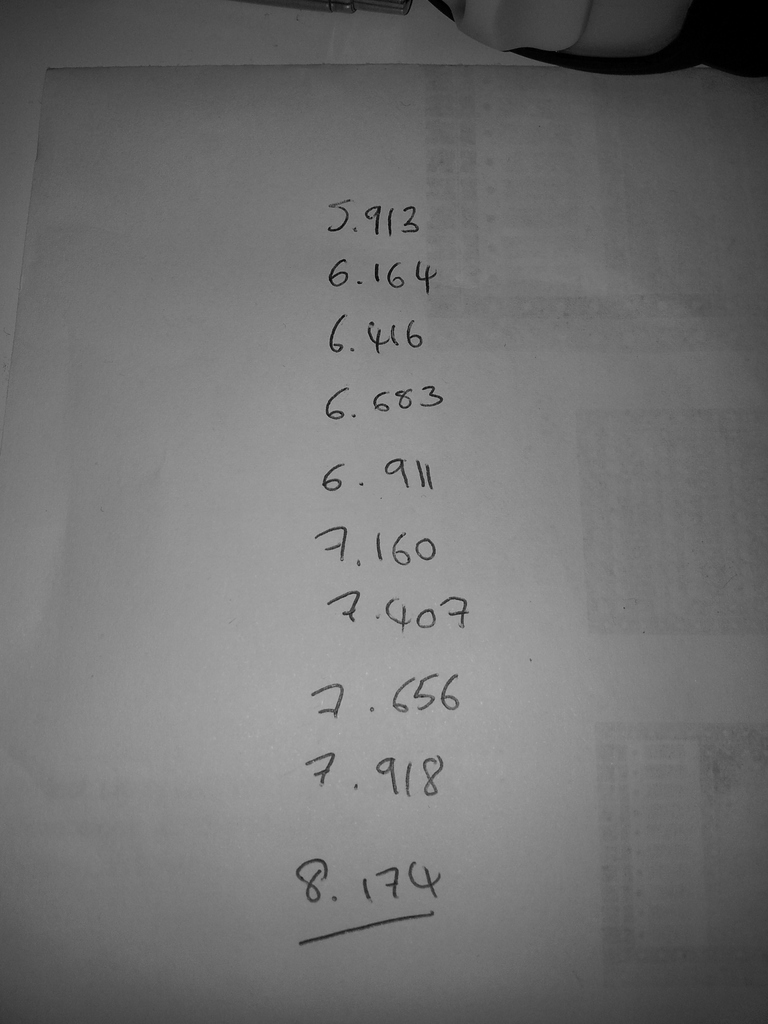 5.913
6.164
6.416
6.683
6.911
7.160
7.407
7.656
7.918
8.174